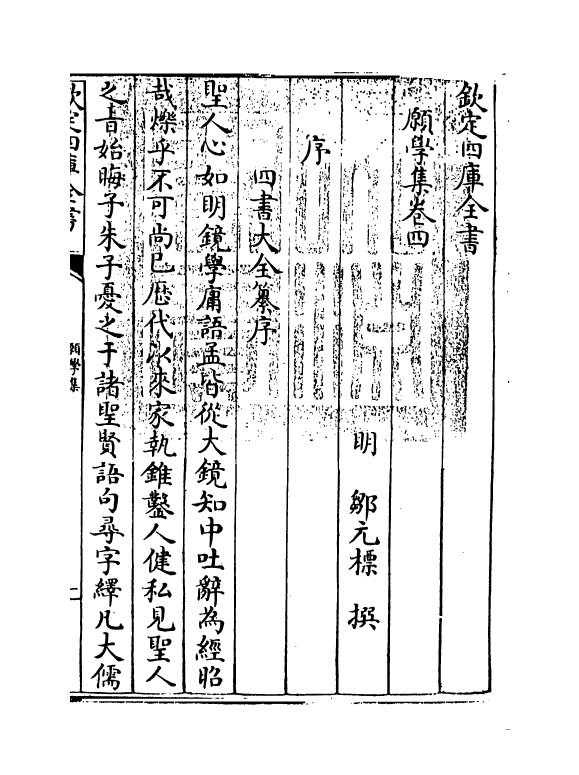 欽定四庫全書
願學集卷四
明 鄒元標 撰
序
四書大全纂序
聖人心如明鏡學庸語孟皆從大鏡知中吐辭為經昭
哉爍乎不可尚已歷代以來家執錐鑿人健私見聖人
之言始晦子朱子憂之于諸聖賢語句尋字繹凡大儒
欽定四庫全書
願學集